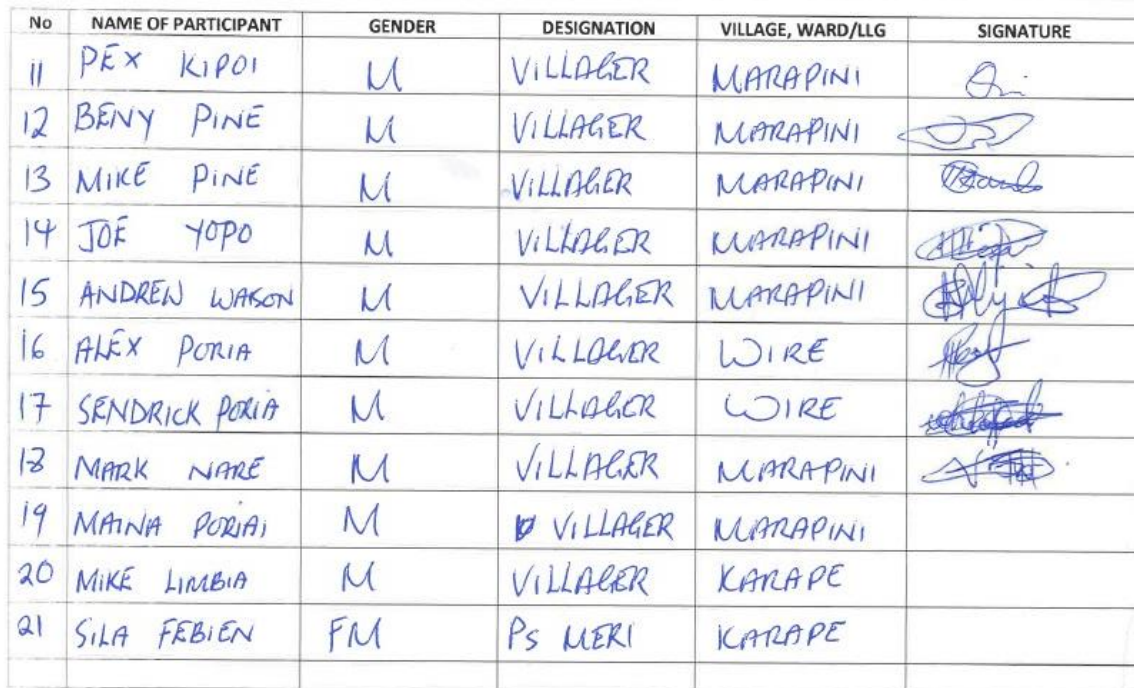 No NAME OF PARTICIPANT GENDER DESIGNATION VILLAGE, WARD/LLG SIGNATURE
11 PEX KIPOI M VILLAGER MARAPINI
12 BENY PINE M VILLAGER MARAPINI
13 MIKE PINE M VILLAGER MARAPINI
14 JOE YOPO M VILLAGER MARAPINI
15 ANDREW WASON M VILLAGER MARAPINI
16 ALEX PORIA M VILLAGER WIRE
17 SENDRICK PORIA M VILLAGER WIRE
18 MARK NARE M VILLAGER MARAPINI
19 MAINA PORIAI M VILLAGER MARAPINI
20 MIKE LIMBIA M VILLAGER KARAPE
21 SILA FEBIEN FM PS MERI KARAPE